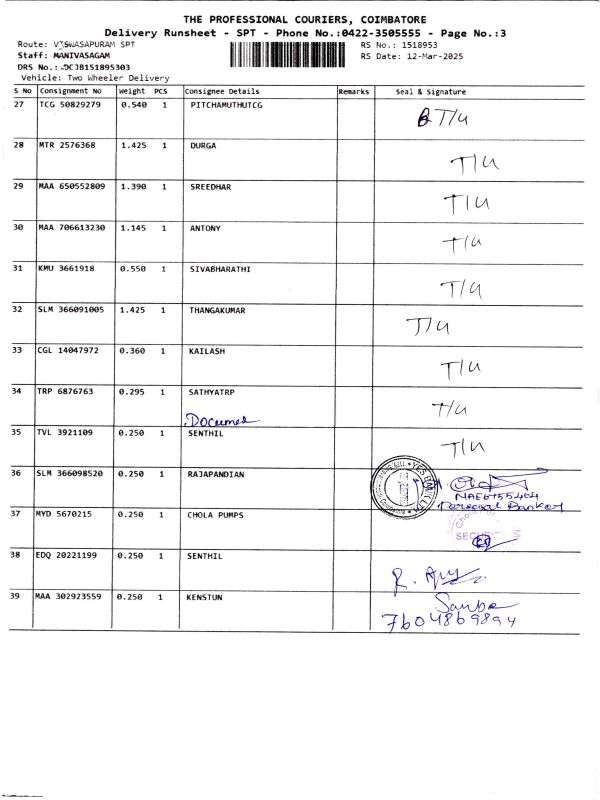 THE PROFESSIONAL COURIERS, COIMBATORE
Delivery Runsheet - SPT - Phone No.:0422-3505555 - Page No.:3
Route: VISWASAPURAM SPT RS No.: 1518953
Staff: MANIVASAGAM RS Date: 12-Mar-2025
DRS No.: DCJB151895303
Vehicle: Two Wheeler Delivery
S No Consignment No Weight PCS Consignee Details Remarks Seal & Signature
27 TCG 50829279 0.540 1 PITCHAMUTHUTCG T/U
28 MTR 2576368 1.425 1 DURGA T/U
29 MAA 650552809 1.390 1 SREEDHAR T/U
30 MAA 706613230 1.145 1 ANTONY T/U
31 KMU 3661918 0.550 1 SIVABHARATHI T/U
32 SLM 366091005 1.425 1 THANGAKUMAR T/U
33 CGL 14047972 0.360 1 KAILASH T/U
34 TRP 6876763 0.295 1 SATHYATRP T/U
Documed
35 TVL 3921109 0.250 1 SENTHIL T/U
36 SLM 366098520 0.250 1 RAJAPANDIAN YES BANK LTD
Personal Banker
37 MYD 5670215 0.250 1 CHOLA PUMPS
38 EDQ 20221199 0.250 1 SENTHIL
39 MAA 302923559 0.250 1 KENSTUN
7604869894